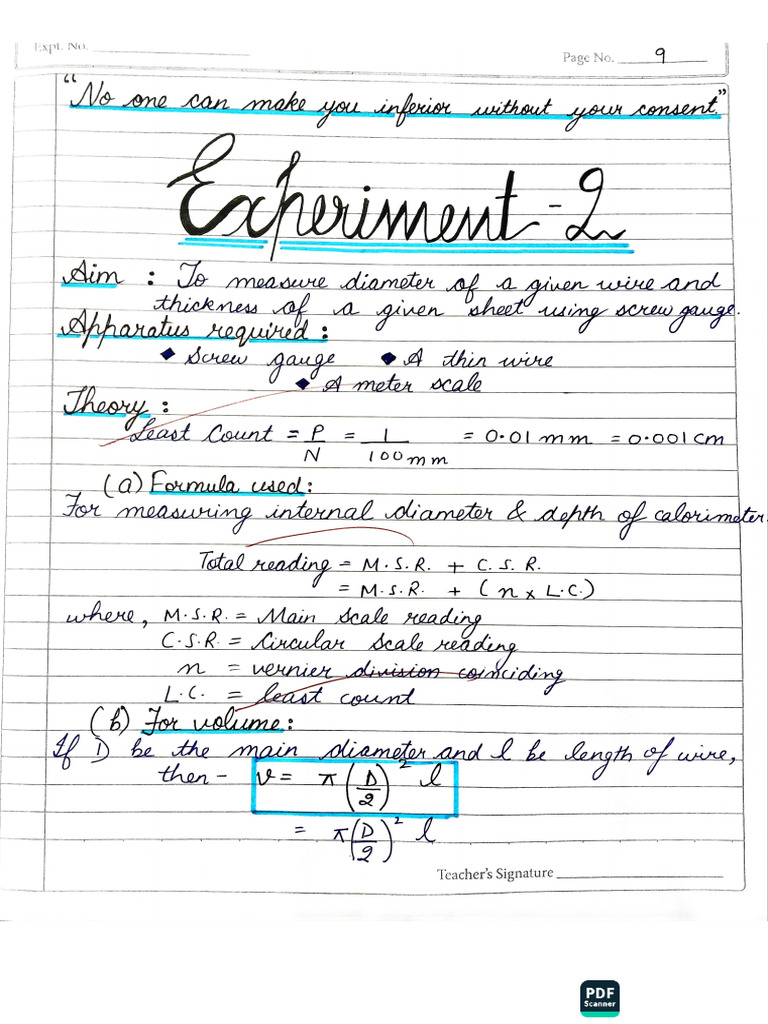 Expt. No.
Page No. 9
"No one can make you inferior without your consent."
Experiment-2
Aim : To measure diameter of a given wire and
thickness of a given sheet using screw gauge.
Apparatus required :
◆ Screw gauge ◆ A thin wire
◆ A meter scale
Theory :
Least Count = P/N = 1/100 mm = 0.01 mm = 0.001 cm
(a) Formula used:
For measuring internal diameter & depth of calorimeter.
Total reading = M.S.R. + C.S.R.
= M.S.R. + (n x L.C.)
where, M.S.R. = Main scale reading
C.S.R. = Circular scale reading
n = vernier division coinciding
L.C. = least count
(b) For volume:
If D be the main diameter and l be length of wire,
then - v = π(D/2)² l
= π(D/2)² l
Teacher's Signature
PDF
Scanner